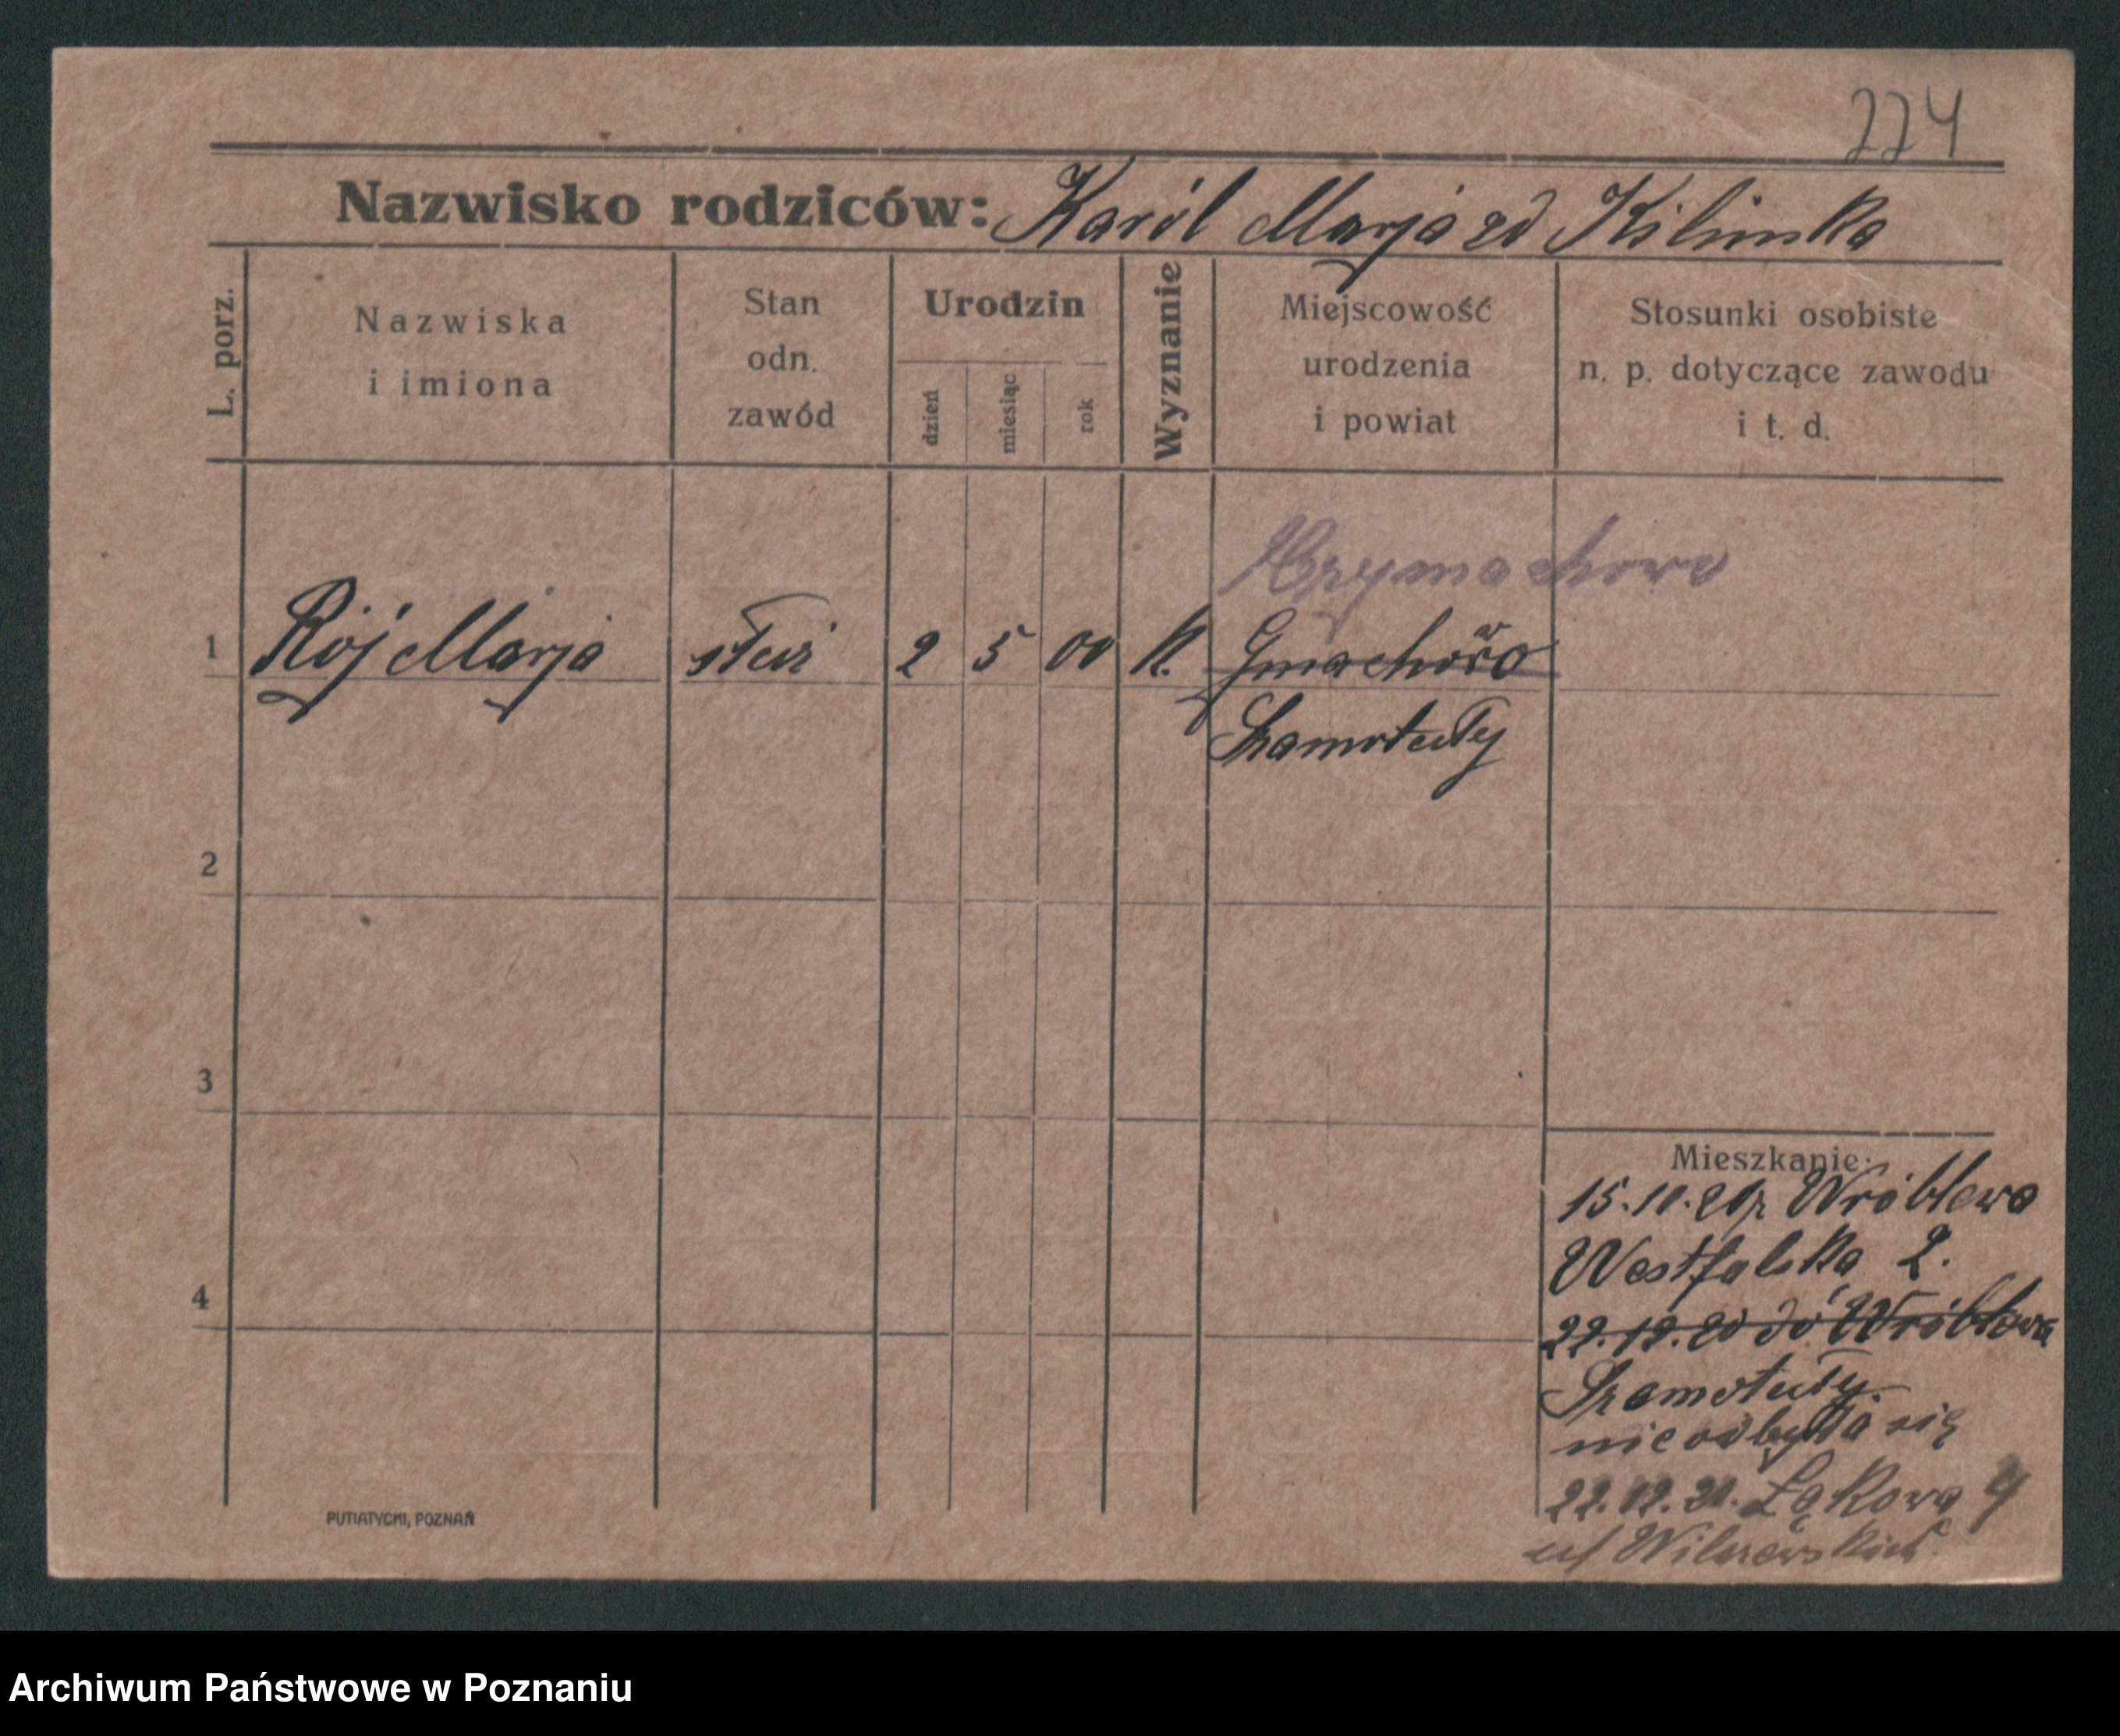 224
Nazwisko rodziców: Karól Marja zd Kilinska
L. porz.
Nazwiska
i imiona
Stan
odn.
zawód
Urodzin
dzień
miesiąc
rok
Wyznanie
Miejscowość
urodzenia
i powiat
Stosunki osobiste
n. p. dotyczące zawodu
i t. d.
1 Rój Marja służ 2 5 00 K. Gmachowo
Szamotuły
2
3
4
Mieszkanie:
15.10.20 z Wróblewa
Westfalska 2.
22.12.20 do Wróblewa
Szamotuły.
nie odbyła się
22.12.21. Łąkowa 4
PUTIATYCKI, POZNAŃ
Archiwum Państwowe w Poznaniu